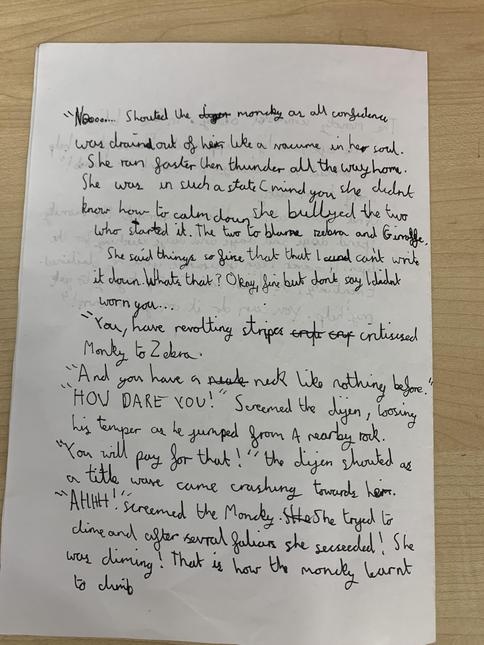 "Nooooo.... Shouted the moncky as all confidence
was draind out of her like a vacume in her soul.
She ran faster then thunder all the way home.
She was in such a state (mind you she didnt
know how to calm down she bullyed the two
who started it. The two to blame zebra and Giraffe.
She said things so firse that that I cant write
it down. Whats that? Okay, fine but dont say I didnt
worn you...
"You, have revolting stripes critisused
Monky to Zebra.
"And you have a neck like nothing before."
"HOW DARE YOU!" Screemed the dijen, loosing
his temper as he jumped from A nearby rock.
"You will pay for that!" the dijen shouted as
a title wave came crashing towards her.
"AHHH!" screemed the Moncky. She tryed to
clime and after sevral faliars she secseeded! She
was climing! That is how the moncky learnt
to climb